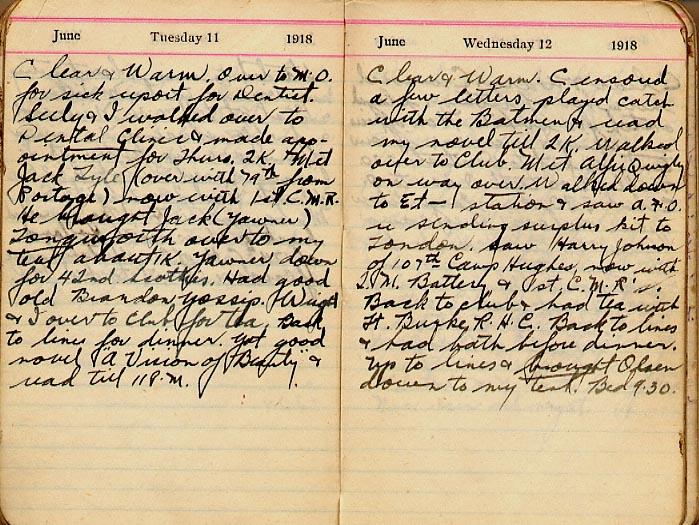 June Tuesday 11 1918
Clear & Warm. Over to M.O.
for sick report for Dentist.
Seely & I walked over to
Dental Clinic & made app-
ointment for Thurs. 2K. Met
Jack Lyle (over with 79th from
Portage) now with 1st C.M.R.
He brought Jack (Yawner)
Longworth over to my
tent about 1K. Yawner down
for 42nd brother. Had good
old Brandon gossip. Wright
& I over to Club for tea. Back
to lines for dinner. Got good
novel "A Vision of Beauty" &
read till 11 P.M.
June Wednesday 12 1918
Clear & Warm. Censored
a few letters, played catch
with the Batmen & read
my novel till 2K. Walked
over to Club. Met Alfie Quigly
on way over. Walked down
to Et— station & saw A.F.O.
re sending surplus kit to
London. Saw Harry Johnson
of 107th Camp Hughes, now with
T.M. Battery & 1st C.M.R's.
Back to club & had tea with
Lt. Burke R.H.C. Back to lines
& had bath before dinner.
Up to lines & brought Olsen
down to my tent. Bed 9.30.